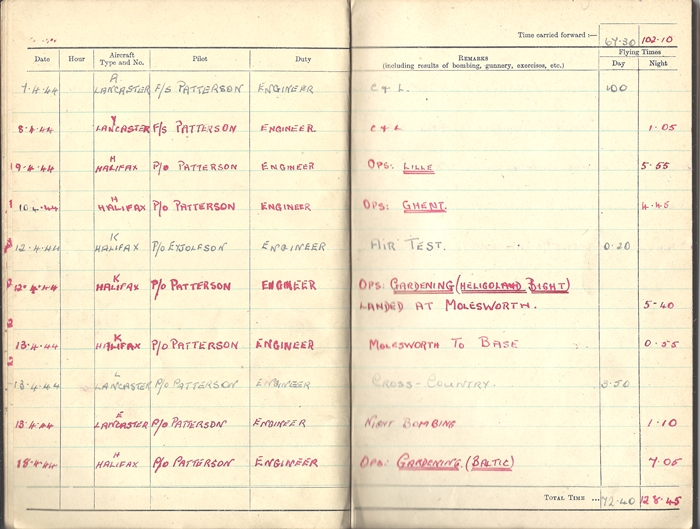 Time carried forward :— 67.30 102.10
Date Hour Aircraft Type and No. Pilot Duty REMARKS (including results of bombing, gunnery, exercises, etc.) Flying Times Day Night
7.4.44 A LANCASTER F/S PATTERSON ENGINEER C & L. 1.00
8.4.44 Y LANCASTER F/S PATTERSON ENGINEER C & L 1.05
9.4.44 H HALIFAX P/O PATTERSON ENGINEER OPS: LILLE 5.55
10.4.44 H HALIFAX P/O PATTERSON ENGINEER OPS: GHENT. 4.45
12.4.44 K HALIFAX P/O EYJOLFSON ENGINEER AIR TEST. 0.20
12.4.44 K HALIFAX P/O PATTERSON ENGINEER OPS: GARDENING (HELIGOLAND BIGHT)
LANDED AT MOLESWORTH. 5.40
13.4.44 K HALIFAX P/O PATTERSON ENGINEER MOLESWORTH TO BASE 0.55
13.4.44 L LANCASTER P/O PATTERSON ENGINEER CROSS-COUNTRY. 3.50
13.4.44 E LANCASTER P/O PATTERSON ENGINEER NIGHT BOMBING 1.10
18.4.44 H HALIFAX P/O PATTERSON ENGINEER OPS: GARDENING. (BALTIC) 7.05
TOTAL TIME ... 72.40 128.45